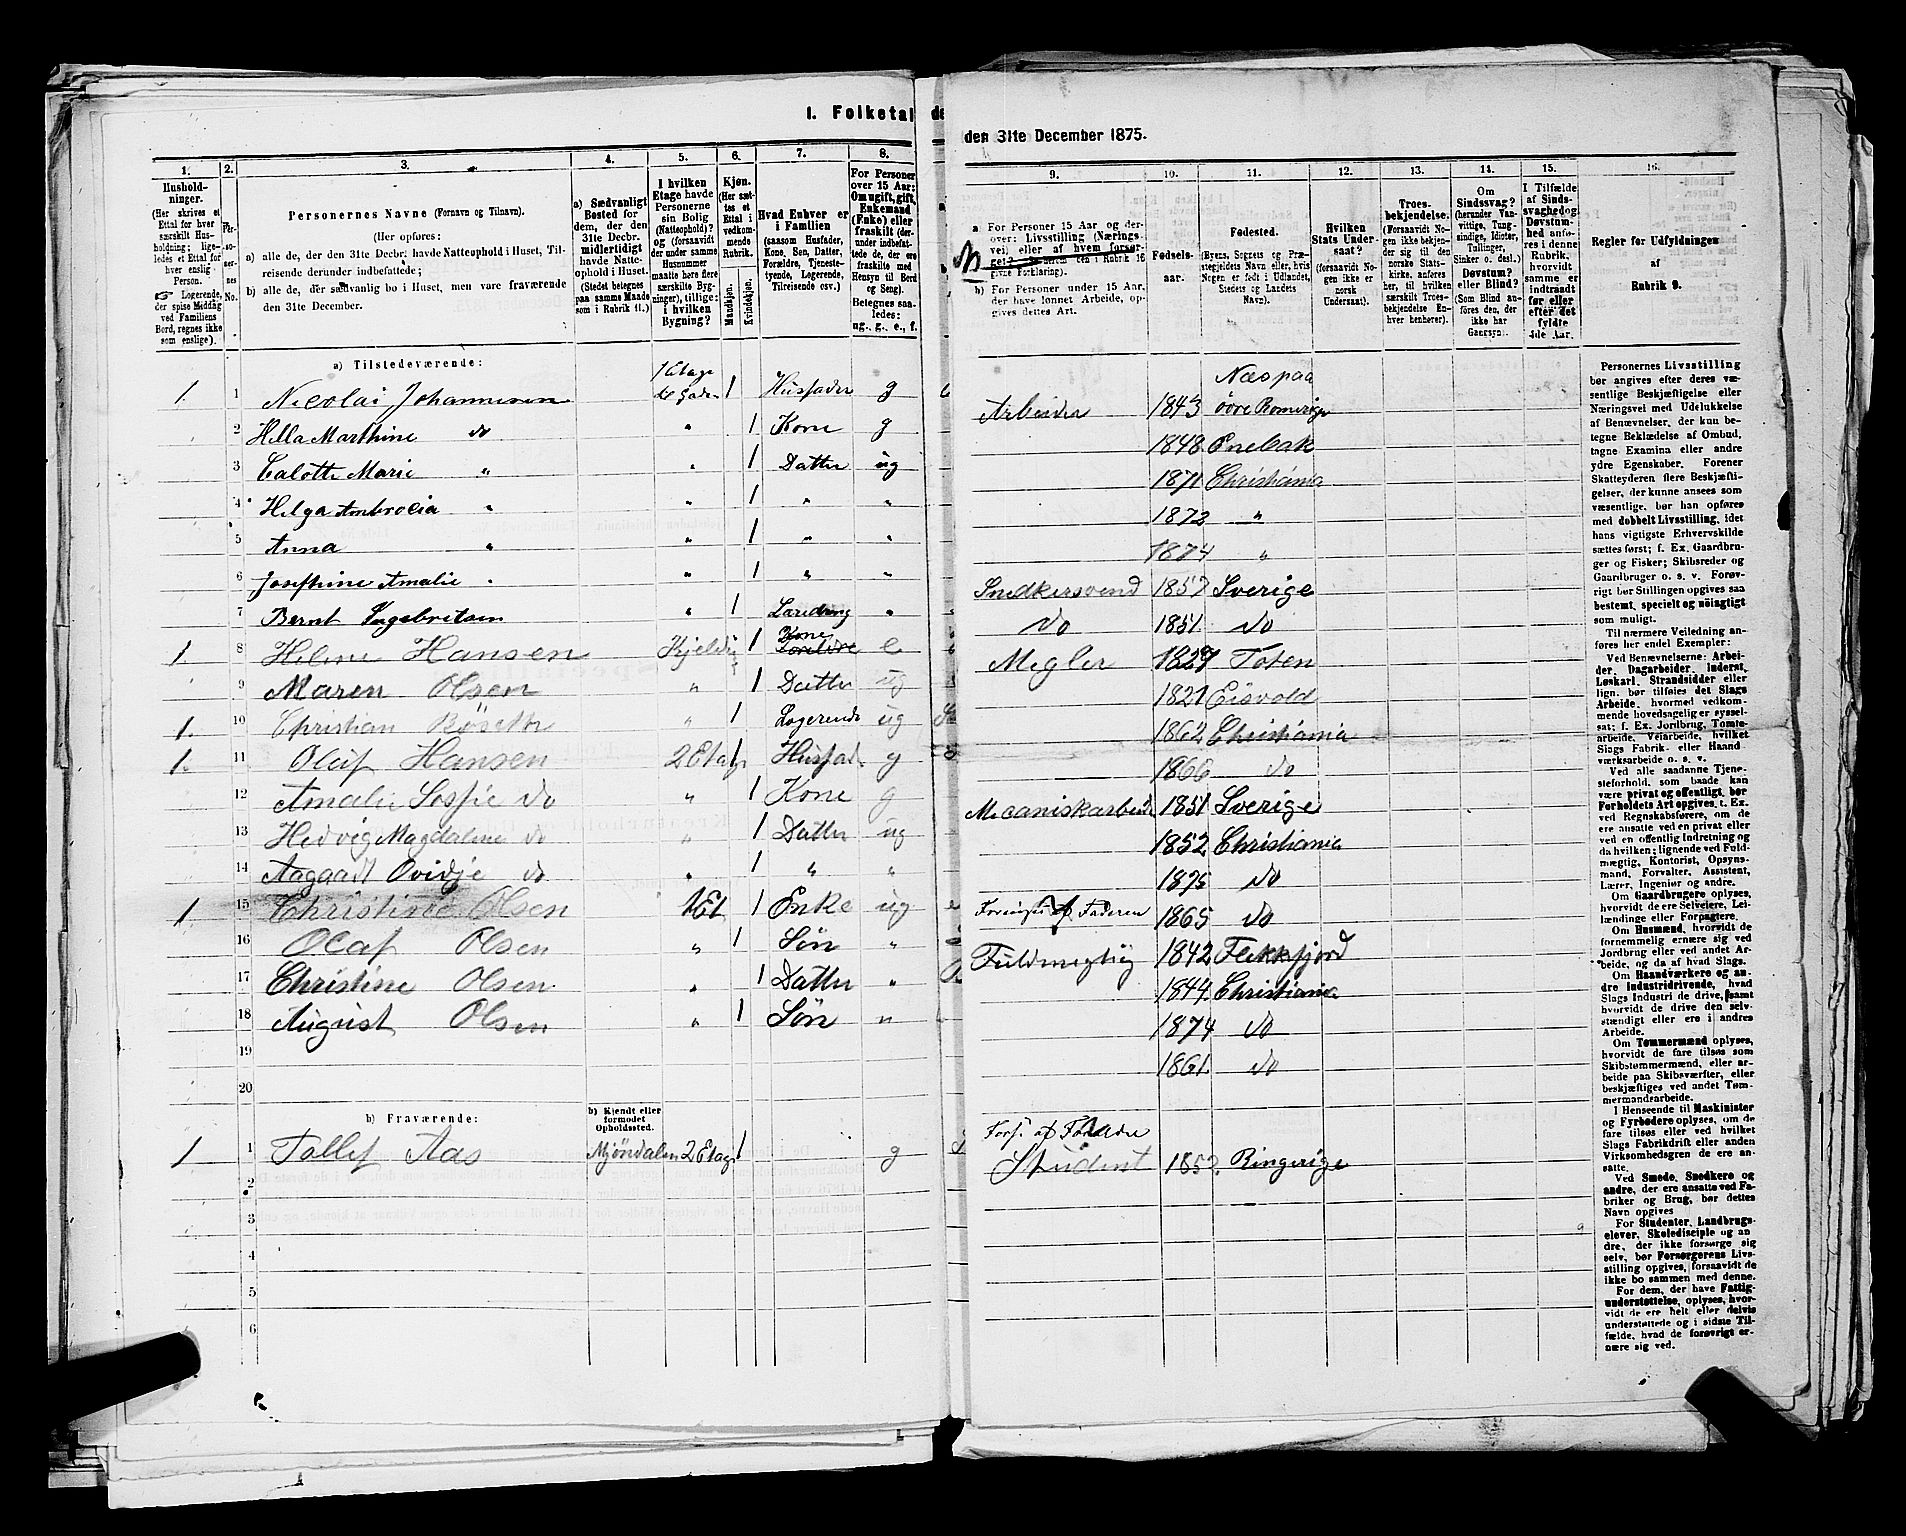 I. Folketal de
1.
2.
3.
4.
5.
6.
7.
8.
Hushold-
ninger.
(Her skrives et
Ettal for hver
særskilt Hus-
holdning; lige-
ledes et Ettal for
hver enslig
Person.
☞ Logerende,
der spise Middag
ved Familiens
Bord, regnes ikke
som enslige).
Per-
so-
ner-
nes
No.
Personernes Navne (Fornavn og Tilnavn).
(Her opføres:
a) alle de, der den 31te Decbr. havde Natteophold i Huset, Til-
reisende derunder indbefattede;
b) alle de, der sædvanlig bo i Huset, men vare fraværende
den 31te December.
a) Sædvanligt
Bosted for
dem, der den
31te Decbr.
midlertidigt
havde Natte-
ophold i Huset.
(Stedet betegnes
paa samme Maade
som i Rubrik 11.)
I hvilken
Etage havde
Personerne
sin Bolig
(Natteophold)?
og (forsaavidt
der under samme
Husnummer
maatte høre flere
særskilte Byg-
ninger), tillige:
i hvilken
Bygning?
Kjøn.
(Her sæt-
tes et
Ettal i
vedkom-
mende
Rubrik.
Mandkjøn.
Kvindekjøn.
Hvad Enhver er
i Familien
(saasom Husfader,
Kone, Søn, Datter,
Forældre, Tjeneste-
tyende, Logerende,
Tilreisende osv.)
For Personer
over 15 Aar:
Om ugift, gift,
Enkemand
(Enke) eller
fraskilt (der-
under indbefat-
tede de, der ere
fraskilte med
Hensyn til Bord
og Seng).
Betegnes saa-
ledes:
ug., g., e., f.
a) Tilstedeværende:
1. 1 Nicolai Johannesen 1 Etage til Gaden 1 Husfader g
2 Hella Marthine do " 1 Kone g
3 Calotte Marie " " 1 Datter ug
4 Helga Ambrocia " " 1 " "
5 Anna " " 1 " "
6 Josephine Amalie " " 1 " "
7 Bernt Ingebritsen " 1 "
1. 8 Helene Hansen 1 Kone e
9 Maren Olsen " 1 Datter ug
1. 10 Christian " 1 Logerende ug
1. 11 Olaf Hansen 2 Etage 1 Husfad. g
12 Amalie Sofie do " 1 Kone g
13 Hedvig Magdalene do " 1 Datter ug
14 Aagaadt Ovidje do " 1 " "
1 15 Christine Olsen 1 Et 1 Enke ug
16 Olaf Olsen " 1 Søn "
17 Christine Olsen " 1 Datter "
18 August Olsen " 1 Søn "
19
20
b) Fraværende:
b) Kjendt eller
formodet
Opholdssted.
1 1 Tollef Aas Mjöndalen 2 Etage 1 g
2
3
4
5
6
den 31te December 1875.
9.
10.
11.
12.
13.
14.
15.
16.
a) For Personer 15 Aar og der-
over: Livsstilling (Nærings-
vei) eller af hvem forsør-
get?
givne Forklaring).
b) For Personer under 15 Aar,
der have lønnet Arbeide, op-
gives dettes Art.
Fødsels-
aar.
Fødested.
(Byens, Sognets og Præ-
stegjeldets Navn eller, hvis
Nogen er født i Udlandet,
Stedets og Landets
Navn).
Hvilken
Stats Under-
saat?
(forsaavidt No-
gen ikke er
norsk
Undersaat).
Troes-
bekjendelse.
(Forsaavidt No-
gen ikke bekjen-
der sig til den
norske Stats-
kirke, anføres
her, til hvilken
særskilt Troes-
bekjendelse En-
hver henhører).
Om
Sindssvag?
(herunder Van-
vittige, Tung-
sindige, Idioter,
Tullinger,
Sinker o. desl.)
Døvstum?
eller Blind?
(Som Blind an-
føres den, der
ikke har
Gangsyn).
I Tilfælde
af Sinds-
svaghed og
Døvstum-
hed anfø-
res i denne
Rubrik,
hvorvidt
samme er
indtraadt
før eller
efter det
fyldte
4de Aar.
Regler for Udfyldningen
af
Rubrik 9.
Næs paa
Arbeider 1843 övre Romerige
1848 Enebak
1871 Christiania
1873 "
1874 "
Snedkersvend 1857 Sverige
do 1851 do
Megler 1827 Toten
1821 Eisvold
1862 Christiania
1866 do
Mecaniskarbeid 1851 Sverige
1852 Christiania
1875 do
af Faderen 1865 do
Fuldmegtig 1842 Flekkefjord
1844 Christiania
1874 do
1861 do
Fors. af Forældre
Student 1852 Ringerige
Personernes Livsstilling
bør angives efter deres væ-
sentlige Beskjæftigelse eller
Næringsvei med Udelukkelse
af Benævnelser, der kun be-
tegne Beklædelse af Ombud,
tagne Examina eller andre
ydre Egenskaber. Forener
Skatteyderen flere Beskjæfti-
gelser, der kunne ansees som
væsentlige, bør han opføres
med dobbelt Livsstilling, idet
hans vigtigste Erhvervskilde
sættes først; f. Ex. Gaardbru-
ger og Fisker; Skibsreder og
Gaardbruger o. s. v. Forøv-
rigt bør Stillingen opgives saa
bestemt, specielt og nøiagtigt
som muligt.
Til nærmere Veiledning an-
føres her endel Exempler:
Ved Benævnelserne: Arbei-
der, Dagarbeider, Inderst,
Løskarl, Strandsidder eller
lign. bør tilføies det Slags
Arbeide, hvormed vedkom-
mende hovedsagelig er syssel-
sat; f. Ex. Jordbrug, Tomte-
arbeide, Veiarbeide, hvilket
Slags Fabrik- eller Haand
værksarbeide o. s. v.
Ved alle saadanne Tjene-
steforhold, som baade kan
være privat og offentligt, bør
Forholdets Art opgives, t. Ex.
ved Regnskabsførere, om de
ere ansatte ved en privat eller
ved en offentlig Indretning og
da hvilken; lignende ved Fuld-
mægtig, Kontorist, Opsyns-
mand, Forvalter, Assistent,
Lærer, Ingeniør og andre.
Om Gaardbrugere oplyses,
hvorvidt de ere Selveiere, Lei-
lændinge eller Forpagtere.
Om Husmænd, hvorvidt de
fornemmelig ernære sig ved
Jordbrug eller ved andet Ar-
beide, og da af hvad Slags.
Om Haandværkere og an-
dre Industridrivende, hvad
Slags Industri de drive, samt
hvorvidt de drive den selv-
stændigt eller ere i andres
Arbeide.
Om Tømmermænd oplyses,
hvorvidt de fare tilsøs som
Skibstømmermænd, eller ar-
beide paa Skibsværfter, eller
beskjæftiges ved andet Tøm-
mermandsarbeide.
I Henseende til Maskinister
og Fyrbødere oplyses, om de
fare tilsøs eller ved hvilket
Slags Fabrikdrift eller anden
Virksomhedsgren de ere an-
satte.
Ved Smede, Snedkere og
andre, der ere ansatte ved Fa-
briker og Brug, bør dettes
Navn opgives
For Studenter, Landbrugs-
elever, Skoledisciple og an-
dre, der ikke forsørge sig
selv, bør Forsørgerens Livs-
stilling opgives, forsaavidt de
ikke bo sammen med denne.
For dem, der have Fattig-
understøttelse, oplyses, hvor-
vidt de ere helt eller delvis
understøttede og i sidste Til-
fælde, hvad de forøvrigt er-
nære sig ved.